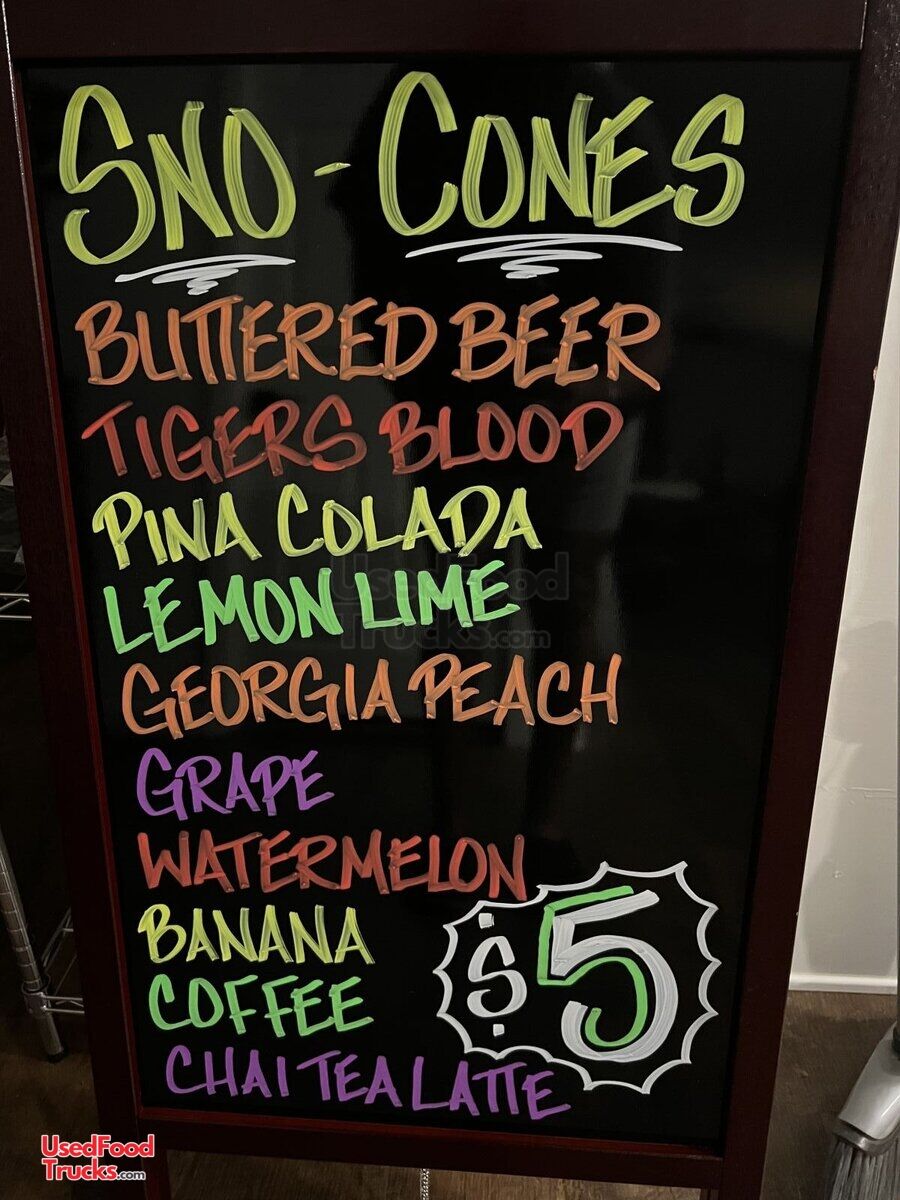 SNO-CONES
BUTTERED BEER
TIGERS BLOOD
PINA COLADA
LEMON LIME
UsedFood
Trucks.com
GEORGIA PEACH
GRAPE
WATERMELON
BANANA
$5
COFFEE
CHAI TEA LATTE
UsedFood
Trucks.com